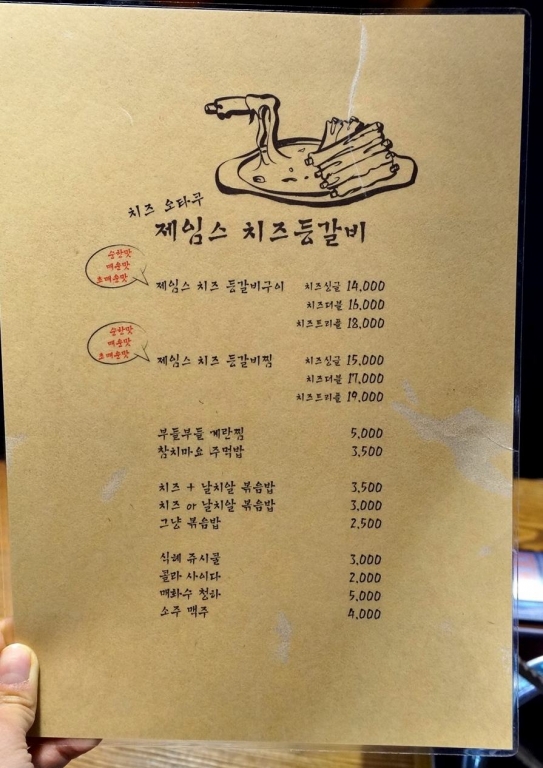 치즈 오타쿠
제임스 치즈등갈비
순한맛
매운맛
초매운맛
제임스 치즈 등갈비구이 치즈싱글 14,000
치즈더블 16,000
치즈트리플 18,000
순한맛
매운맛
초매운맛
제임스 치즈 등갈비찜 치즈싱글 15,000
치즈더블 17,000
치즈트리플 19,000
부들부들 계란찜 5,000
참치마요 주먹밥 3,500
치즈 + 날치알 볶음밥 3,500
치즈 or 날치알 볶음밥 3,000
그냥 볶음밥 2,500
식혜 쥬시쿨 3,000
콜라 사이다 2,000
매화수 청하 5,000
소주 맥주 4,000